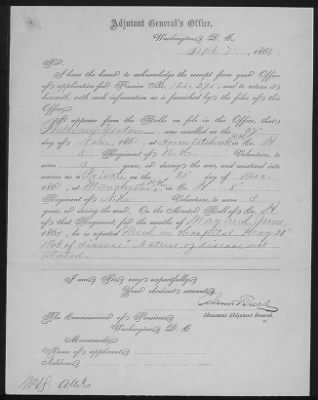 Adjutant General's Office,
Washington, D. C.
Sept 7, 186
Sir:
I have the honor to acknowledge the receipt from your Office
of application for Pension No. and to return it
herewith, with such information as is furnished by the files of this
Office.
It appears from the Rolls on file in this Office, that
William was enrolled on the
day of 186 at in Co. H
8 Regiment of N.H. Volunteers, to serve
3 years, or during the war, and mustered into
service as a Private on the 20 day of Dec
186 , at Manchester N.H. in Co. H 8
Regiment of N.H. Volunteers, to serve 3
years, or during the war. On the Muster Roll of Co. H
of that Regiment, for the months of May and June
186 , he is reported Died in hospital May 20
of disease. Nature of disease not
stated.
I am, Sir, very respectfully,
Your obedient servant,
Assistant Adjutant General.
The Commissioner of Pensions,
Washington, D. C.
Memoranda:
Name of applicant,
Address,